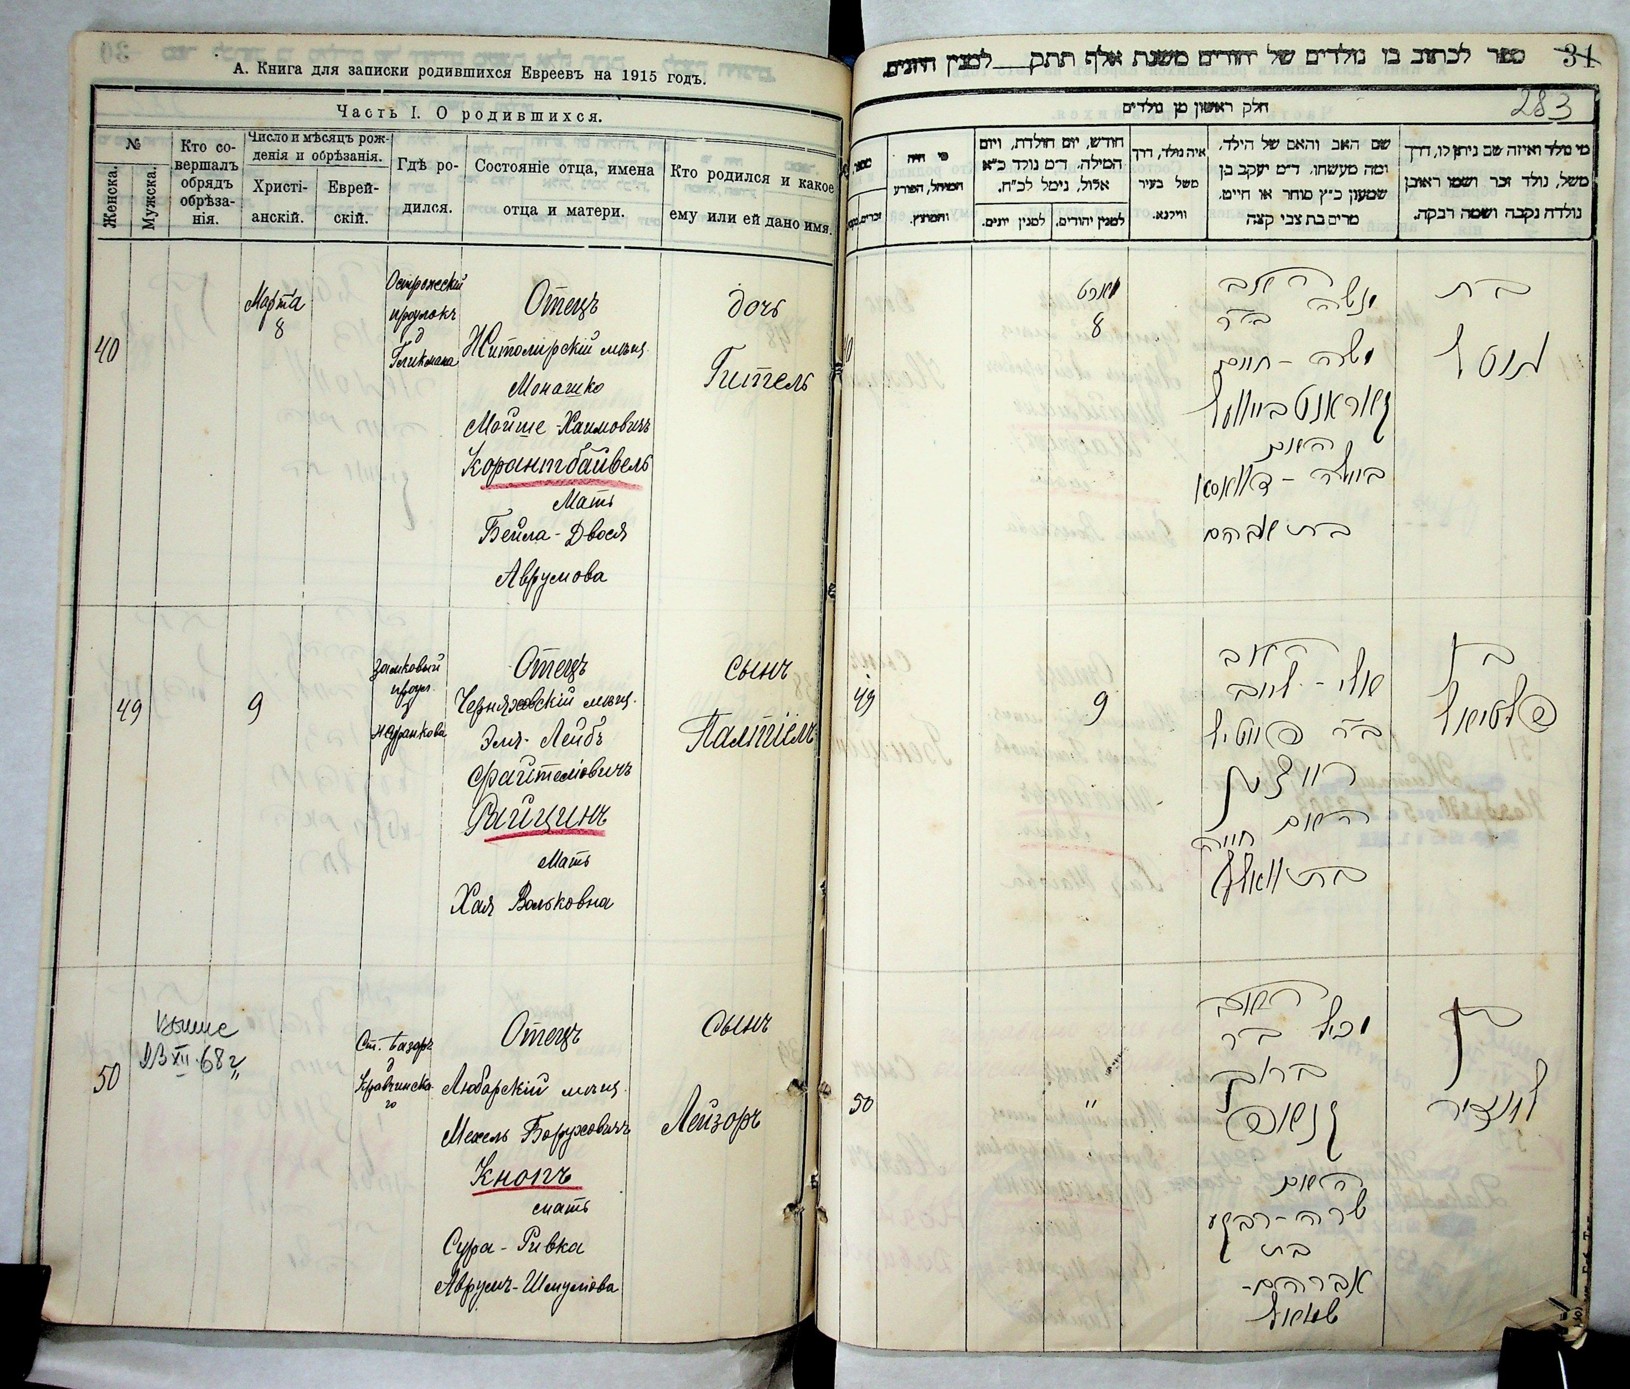 А. Книга для записки родившихся Евреевъ на 1915 годъ.
Часть I. О родившихся.
№
Женска.
Мужска.
Кто со-
вершалъ
обрядъ
обрѣза-
нія.
Число и мѣсяцъ рож-
денія и обрѣзанія.
Христі-
анскій.
Еврей-
скій.
Гдѣ ро-
дился.
Состояніе отца, имена
отца и матери.
Кто родился и какое
ему или ей дано имя.
40
Марта
8
Острожскій
проулокъ
д
Гликмана
Отецъ
Житомірскій мѣщ.
Монашко
Мойше-Хаимовичъ
Корантбайвель
Мать
Бейла-Двося
Аврумова
дочь
Гитель
49
9
Замковый
проул.
д
Отецъ
Черняховскій мѣщ.
Эля-Лейбъ
Файтелювичъ
Райцинъ
Мать
Хая Вольковна
сынъ
Палтіель
50
68 г.
Ст. базаръ
д
Кравчинска
го
Отецъ
Любарскій мѣщ.
Мехель Боруховичъ
Кнопъ
мать
Сура-Ривка
Аврумъ-Шмулiова
сынъ
Лейзоръ
ספר לכתוב בו נולדים של יהודים משנת אלף תתק___למנין היונים.
31
283
חלק ראשון מן נולדים
מי נולד ואיזה שם ניתן לו, דרך
משל, נולד זכר ושמו ראובן
נולדה נקבה ושמה רבקה.
שם האב והאם של הילד,
ומה מעשהו. ד״מ יעקב בן
שמעון כ״ץ סוחר או חיים.
מרים בת צבי קצה
איה נולד, דרך
משל בעיר
ווילנא.
חודש, יום הולדת, ויום
המילה. ד״מ נולד כ״א
אלול, נימל לכ״ח.
למנין יהודים.
למנין יונים.
מי היה
המוהל, הפורע
והמוצץ.
מספר
זכרים.
בת
האב
מנשה
ב״ר
משה-חיים
קאראנטבייוועל
האם
ביילה-דוואסיא
בת אברהם
מארט
8
בן
פלטיאל
האב
אלי-לייב
ב״ר פייטיל
רייצין
האם חייה
בת וואלף
9
49
בן
לייזיר
האב
מכיל ב״ר
ברוך
קנאפ
האם
שרה-רבקע
בת
אברהם-
שמואל
"
50